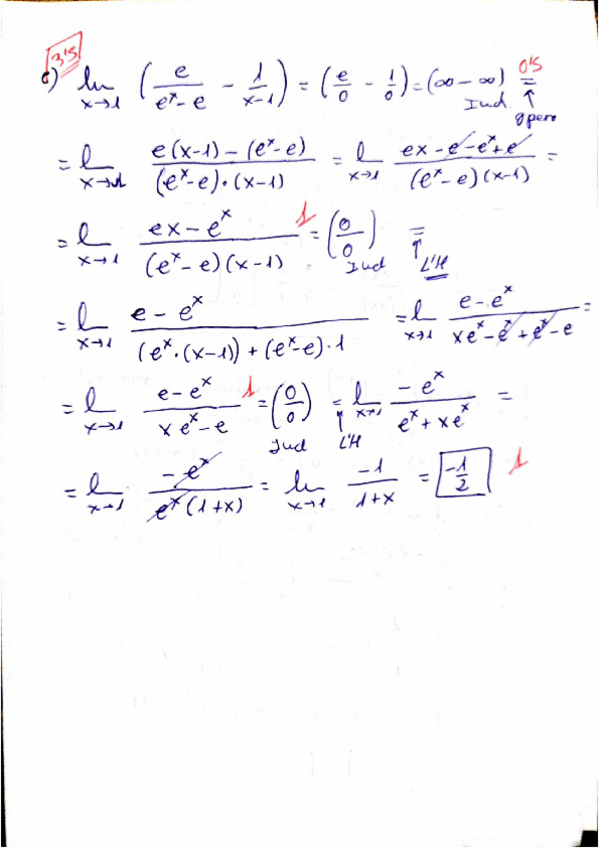 3'5
c) lim x→1 (e/(eˣ-e) - 1/(x-1)) = (e/0 - 1/0) = (∞-∞) Ind. 0'5 = ↑ opero
= lim x→1 (e(x-1) - (eˣ-e))/((eˣ-e)·(x-1)) = lim x→1 (ex-e-eˣ+e)/((eˣ-e)(x-1)) =
= lim x→1 (ex-eˣ)/((eˣ-e)(x-1)) 1 = (0/0) Ind = ↑ L'H
= lim x→1 (e-eˣ)/((eˣ·(x-1))+(eˣ-e)·1) = lim x→1 (e-eˣ)/(xeˣ-eˣ+eˣ-e) =
= lim x→1 (e-eˣ)/(xeˣ-e) 1 = (0/0) Ind = ↑ L'H lim x→1 (-eˣ)/(eˣ+xeˣ) =
= lim x→1 (-eˣ)/(eˣ(1+x)) = lim x→1 (-1)/(1+x) = -1/2 1